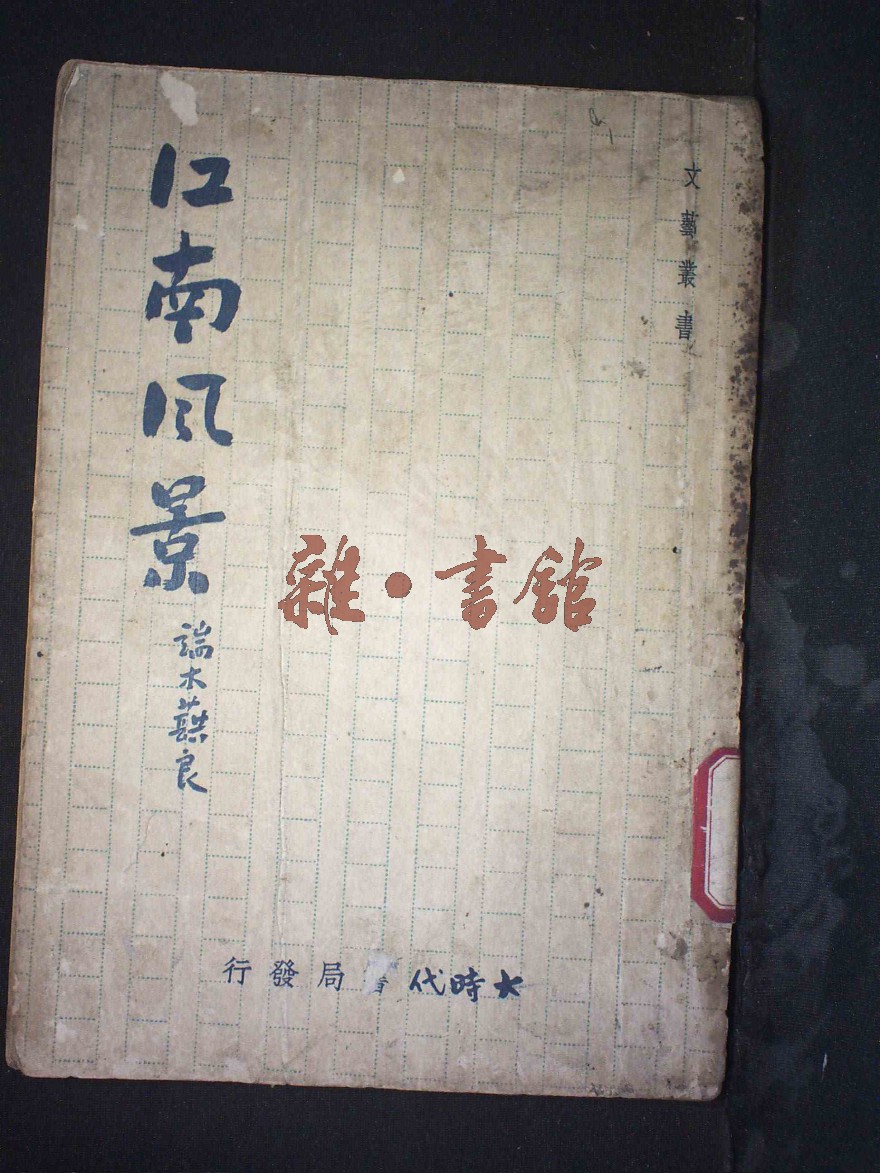 文藝叢書
江南风景
端木蕻良
雜·書館
大時代書局發行